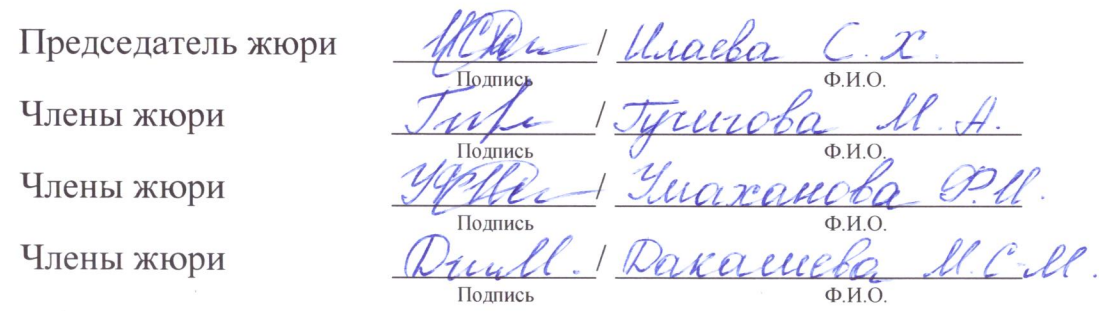 Председатель жюри / Илаева С. Х.
Подпись Ф.И.О.
Члены жюри / Гучигова М. А.
Подпись Ф.И.О.
Члены жюри / Умаханова Ф.И.
Подпись Ф.И.О.
Члены жюри / Дакашева М.С-М.
Подпись Ф.И.О.